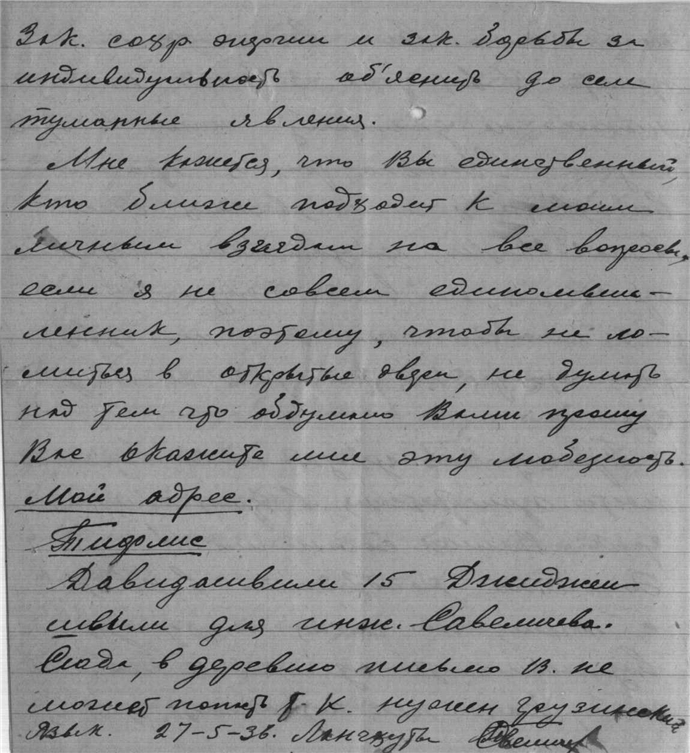 Зак. сохр. энергии и зак. борьбы за
индивидуальность об'яснить до сей
туманные явления.
Мне кажется, что Вы единственный,
кто ближе подходит к моим
личным взглядам на все вопросы,
если я не совсем единомыш-
ленник, поэтому, чтобы не ло-
миться в открытые двери, не думать
над тем что обдумано Вами прошу
Вас окажите мне эту любезность.
Мой адрес.
Тифлис
Давидашвили 15 Джиджеи
швили для инж. Савеличева.
Сюда, в деревню письмо В. не
может попасть т. к. нужен грузинский
язык. 27-5-36. Ланчхуты